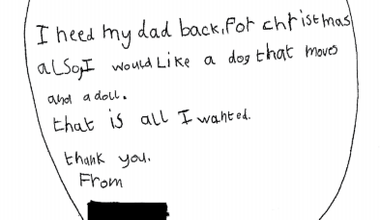 I need my dad back, for christmas
also, I would Like a dog that moves
and a doll.
that is all I wanted.
thank you.
From